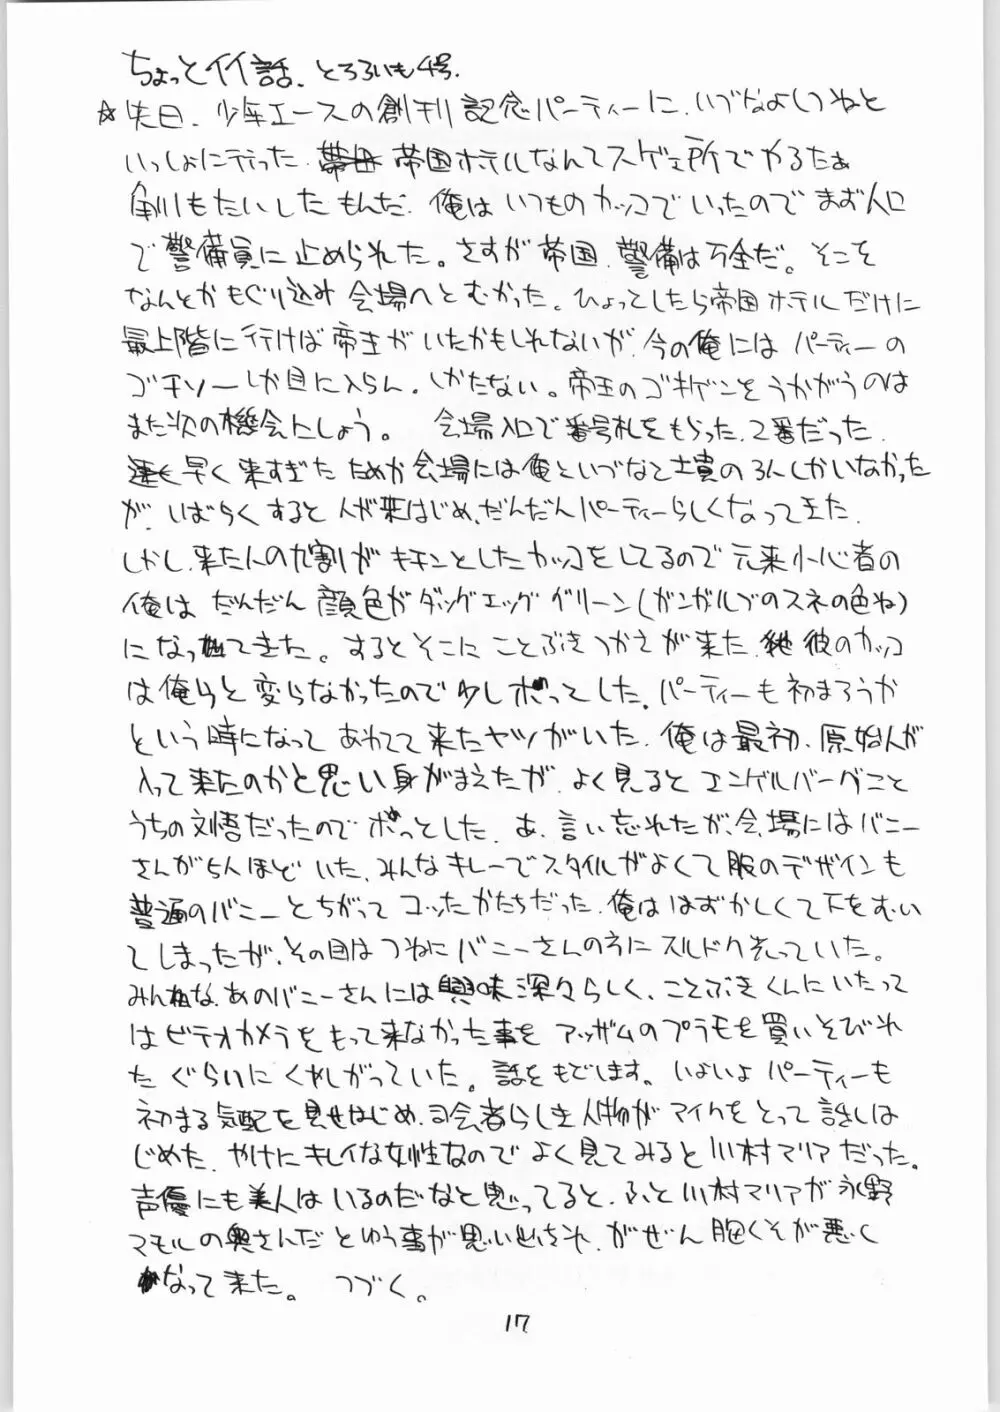 ちょっとイイ話、とろろいも4号.
☆先日、少年エースの創刊記念パーティーに、いづなよしつねと
いっしょに行った 帝国ホテルなんてスゲェ所でやるたぁ
角川もたいしたもんだ. 俺はいつものカッコでいったのでまず入口
で警備員に止められた。さすが帝国、警備は万全だ。そこを
なんとかもぐり込み会場へとむかった。ひょっとしたら帝国ホテルだけに
最上階に行けば帝王がいたかもしれないが、今の俺にはパーティーの
ゴチソーしか目に入らん. しかたない。帝王のゴキゲンをうかがうのは
また次の機会としよう。 会場入口で番号札をもらった、2番だった.
早く来すぎたためか会場には俺といづなと土貴の3人しかいなかった
が、しばらくすると人が来はじめ、だんだんパーティーらしくなってきた.
しかし、来た人の九割がキチンとしたカッコをしてるので元来小心者の
俺はだんだん顔色がダックエッググリーン(ガンガルブのスネの色ね)
になってきた。するとそこにことぶきつかさが来た. 彼のカッコ
は俺らと変らなかったので少しホッってした. パーティーも初まろうか
という時になってあわてて来たヤツがいた. 俺は最初、原始人が
入って来たのかと思い身がまえたが、よく見るとエンゲルバーグこと
うちの刘悟だったのでホッとした. あ、言い忘れたが、会場にはバニー
さんが5人ほどいた、みんなキレーでスタイルがよくて服のデザインも
普通のバニーとちがってコッたかたちだった. 俺ははずかしくて下をむい
てしまったが、その目はつねにバニーさんの方にスルドク光っていた。
みんな、あのバニーさんには興味深々らしく、ことぶきくんにいたって
はビデオカメラをもって来なかった事をアッザムのプラモを買いそびれ
たぐらいにくやしがっていた。話をもどします。いよいよパーティーも
初まる気配を見せはじめ、司会者らしき人物がマイクをとって話しは
じめた. やけにキレイな女性なのでよく見てみると川村マリアだった。
声優にも美人はいるのだなと思ってると、ふと川村マリアが永野
マモルの奥さんだとゆう事が思い出され、がぜん胸くそが悪く
なって来た。 つづく。
17